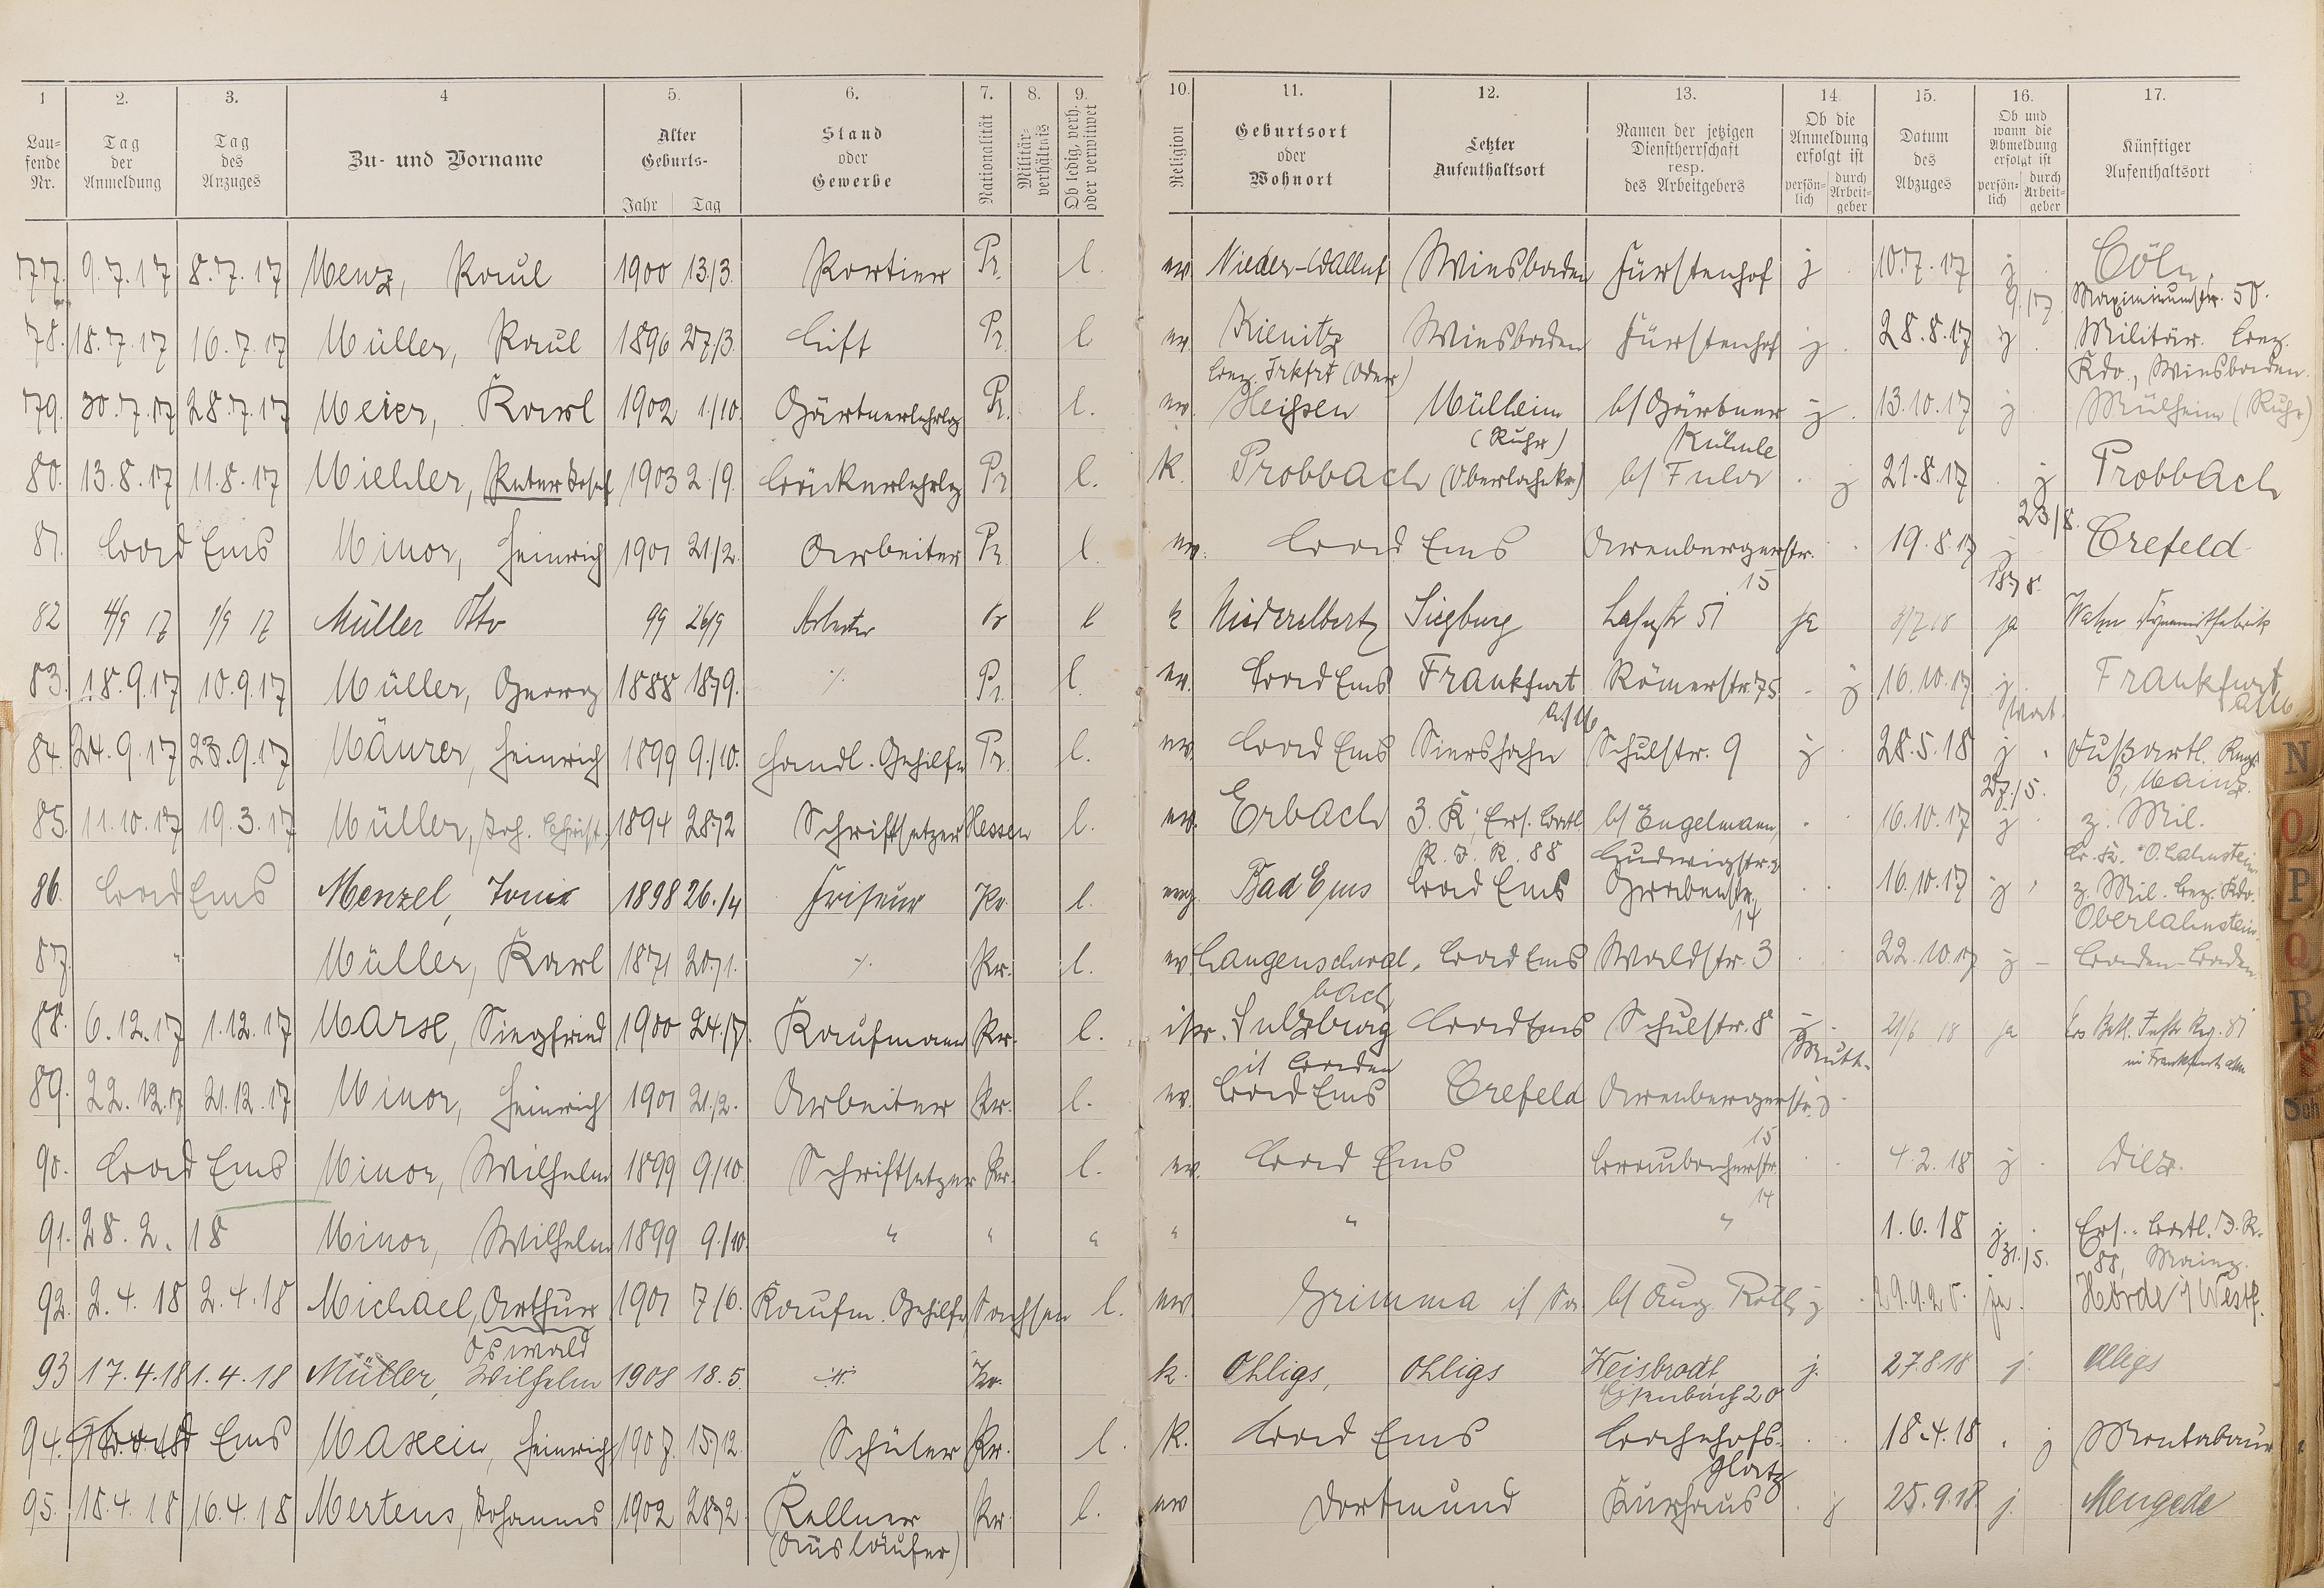 1 2. 3. 4 5. 6. 7. 8. 9. 10. 11. 12. 13. 14 15. 16. 17.
Lau-
fende
Nr.
Tag
der
Anmeldung
Tag
des
Anzuges
Zu- und Vorname
Alter
Geburts-
Jahr Tag
Stand
oder
Gewerbe
Nationalität
Militär-
verhältnis
Ob ledig, verh.
oder verwitwet
Religion
Geburtsort
oder
Wohnort
Letzter
Aufenthaltsort
Namen der jetzigen
Dienstherrschaft
resp.
des Arbeitgebers
Ob die
Anmeldung
erfolgt ist
persön-
lich
durch
Arbeit-
geber
Datum
des
Abzuges
Ob und
wann die
Abmeldung
erfolgt ist
persön-
lich
durch
Arbeit-
geber
Künftiger
Aufenthaltsort
77. 9.7.17 8.7.17 Menz, Paul 1900 13/3. Portier Pr. l. ev. Nieder-Walluf Wiesbaden Fürstenhof j 10.7.17 j Cöln,
9./7. Maximinumstr. 50.
78. 18.7.17 16.7.17 Müller, Paul 1896 27/3. Lift Pr. l ev. Kienitz Wiesbaden Fürstenhof j. 28.8.17 j Militär. Bez.
Bez. Frkfrt (Oder) Kdo., Wiesbaden.
79. 30.7.17 28.7.17 Meier, Karl 1902 1./10. Gärtnerlehrlg Pr. l. ev. Heißen Mülheim b/ Gärtner j. 13.10.17 j. Mülheim (Ruhr)
(Ruhr) Kühnle
80. 13.8.17 11.8.17 Miehler, Peter Josef 1903 2./9. Bäckerlehrlg Pr l. k. Probbach (Oberlahnkr.) b/ Fuhr j 21.8.17 j Probbach
23./8.
81. Bad Ems Minor, Heinrich 1901 21/2. Arbeiter Pr. l. ev. Bad Ems Arenbergerstr. 19.8.17 j Crefeld
15 18/8.
82 4/9 17 1/9 17 Müller Otto 99 26/9 Arbeiter Pr l k Niederelbert Siegburg Lahnstr 51 ja 3/7 18 ja Wahn Dynamitfabrik
83. 18.9.17 10.9.17 Müller, Georg 1888 18/9. ./. Pr. l. ev. Bad Ems Frankfurt Römerstr. 75 j 16.10.17 j. Frankfurt
a/M a/M
84. 24.9.17 23.9.17 Mäurer, Heinrich 1899 9./10. Handl. Gehilfe Pr. l. ev. Bad Ems Siershahn Schulstr. 9 j 28.5.18 j. Fußartl. Regt.
27./5. 3, Mainz.
85. 11.10.17 19.3.17 Müller, Joh. Christ. 1894 28/2 Schriftsetzer Hessen l. ev. Erbach 3. K. Ers. Batl. b/ Engelmann, 16.10.17 j z. Mil.
R. I. R. 88 Ludwigstr. O. Lahnstein
86. Bad Ems Menzel, 1898 26./4 Friseur Pr. l. evg. Bad Ems Bad Ems Grabenstr. 16.10.17 j z. Mil. Bez. Kdo.
14 Oberlahnstein.
87. " Müller, Karl 1871 20/1. ./. Pr. l. ev Langenschwal- Bad Ems Waldstr. 3 22.10.17 j - Baden-Baden
bach
88. 6.12.17 1.12.17 Marx, Siegfried 1900 24./7. Kaufmann Pr. l. isr. Sulzburg Bad Ems Schulstr. 8 j. 21/6 18 ja Ers Batl. Inftr Reg. 81
i/ Baden Mutt. in Frankfurt a/m
89. 22.12.17 21.12.17 Minor, Heinrich 1901 21./2. Arbeiter Pr. l. ev. Bad Ems Crefeld Arenbergerstr. j
15
90. Bad Ems Minor, Wilhelm 1899 9/10. Schriftsetzer Pr. l. ev. Bad Ems Brambacherstr. 4.2.18 j Diez.
14
91. 28.2.18 Minor, Wilhelm 1899 9./10. " " " " " " 1.6.18 j. Ers.-Batl. I. R.
31./5. 88, Mainz.
92. 2.4.18 2.4.18 Michael, Arthur 1901 7/6. Kaufm. Gehilfe Sachsen l. ev. Grimma i/ Sa. b/ Aug. Roth j 29.9.20. ja. Hörde i/Westf.
Oswald
93 17.4.18 1.4.18 Müller, Wilhelm 1908 18.5. ./. Pr. k. Ohligs, Ohligs Heisbrodt j. 27.8.18 j. Ohligs
20
94. Bad Ems Maxein, Heinrich 1907. 15/12. Schüler Pr. l. k. Bad Ems Bahnhofs- 18.4.18 j Montabaur
platz
95. 18.4.18 16.4.18 Mertens, Johannes 1902 28/2. Kellner Pr. l. ev Dortmund Kurhaus j 25.9.18. j. Mengede
(Ausläufer)
N
O
P
Q
R
S
Sch